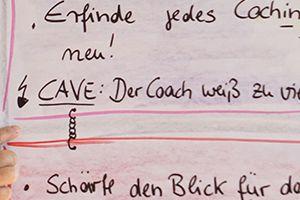 . Erfinde jedes Coachin
neu!
CAVE: Der Coach weiß zu vie
• Schärfe den Blick für da